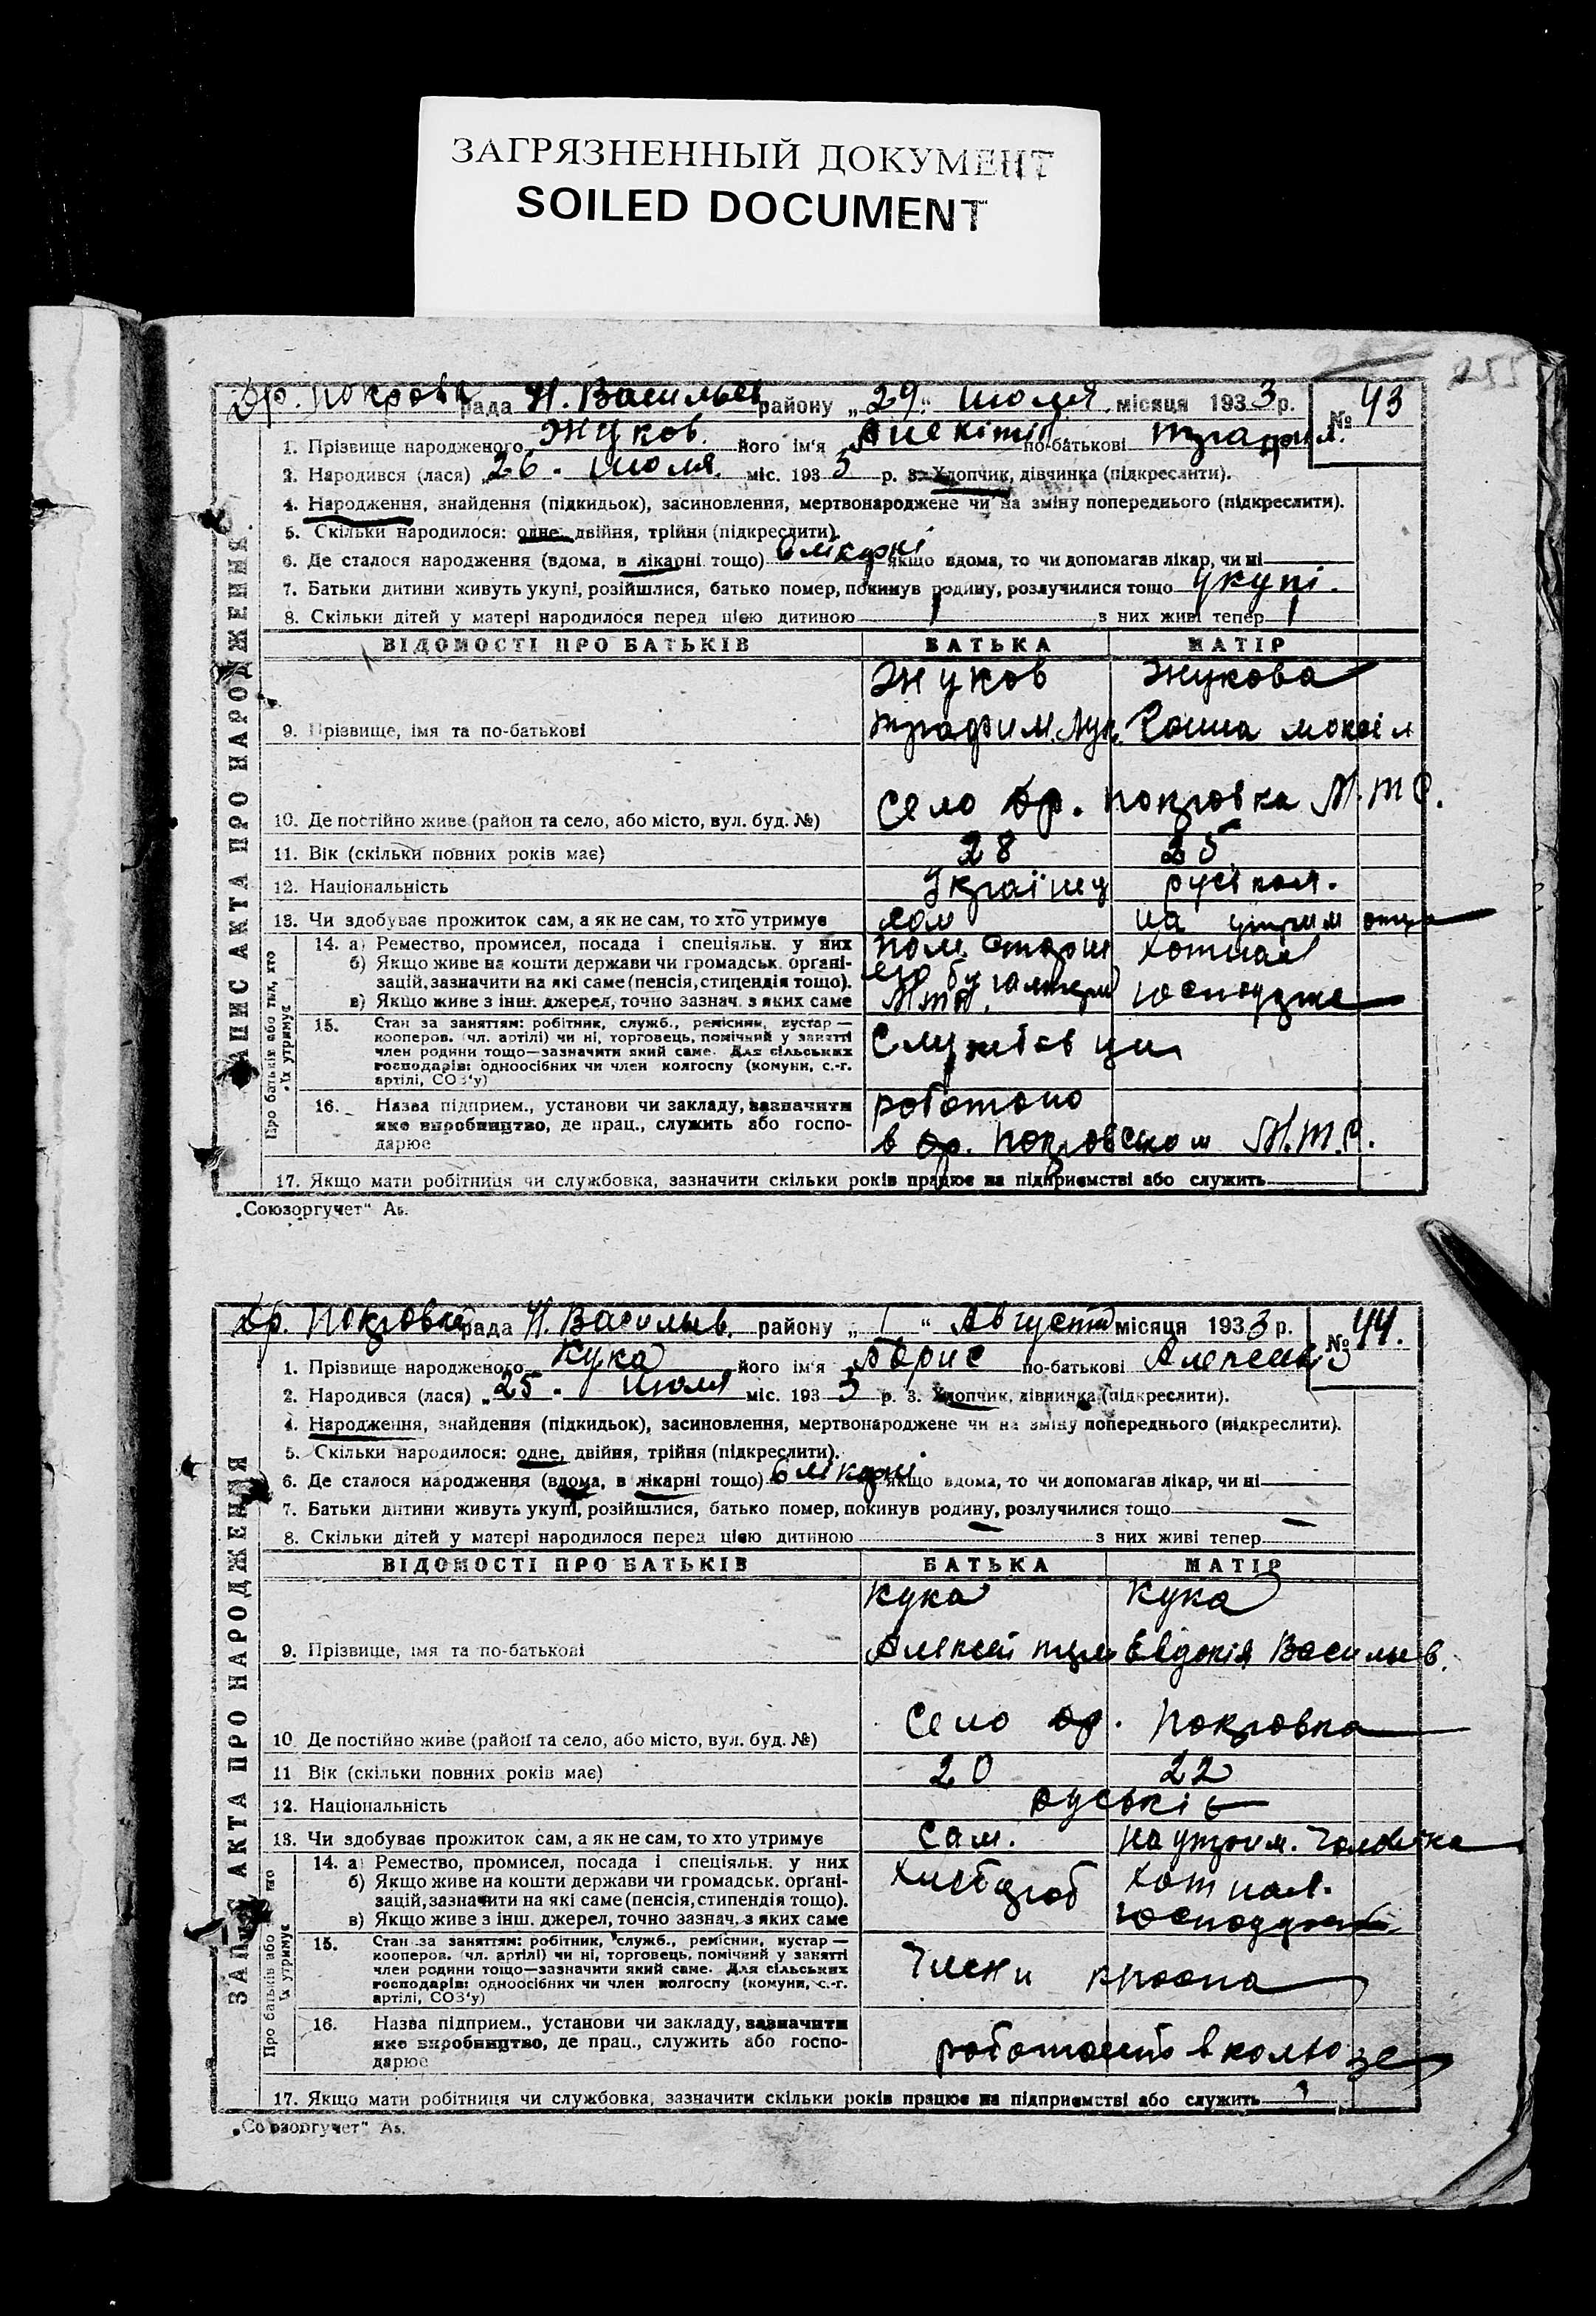 ЗАГРЯЗНЕННЫЙ ДОКУМЕНТ
SOILED DOCUMENT
255
ЗАПИС АКТА ПРО НАРОДЖЕННЯ
рада Н. Васильев району „ 29 “ июля місяця 1933 р. № 43
1. Прізвище народженого Жуков. його ім'я по-батькові
2. Народився (лася) „ 26 . июля. міс. 1933 р. 3. Хлопчик, дівчинка (підкреслити).
4. Народження, знайдення (підкидьок), засиновлення, мертвонароджене чи на зміну попереднього (підкреслити).
5. Скільки народилося: одне, двійня, трійня (підкреслити).
6. Де сталося народження (вдома, в лікарні тощо) в лікарні якщо вдома, то чи допомагав лікар, чи ні
7. Батьки дитини живуть укупі, розійшлися, батько помер, покинув родину, розлучилися тощо укупі.
8. Скільки дітей у матері народилося перед цією дитиною 1 з них живі тепер 1
ВІДОМОСТІ ПРО БАТЬКІВ БАТЬКА МАТІР
Жуков Жукова
9. Прізвище, імя та по-батькові
село покровка М.Т.С.
10. Де постійно живе (район та село, або місто, вул. буд. №)
11. Вік (скільки повних років має) 28 25
12. Національність Українец
13. Чи здобуває прожиток сам, а як не сам, то хто утримує сам на утрим отца
Про батьків або тих, хто їх утримує
14. а) Ремество, промисел, посада і спеціяльн. у них
б) Якщо живе на кошти держави чи громадськ. органі-
зацій, зазначити на які саме (пенсія, стипендія тощо).
в) Якщо живе з інш. джерел, точно зазнач. з яких саме
15. Стан за заняттям: робітник, служб., ремісник, кустар —
кооперов. (чл. артілі) чи ні, торговець, помічний у занятті
член родини тощо—зазначити який саме. Для сільських
господарів: одноосібних чи член колгоспу (комуни, с.-г.
артілі, СОЗ'у)
16. Назва підприєм., установи чи закладу, зазначити
яке виробництво, де прац., служить або госпо-
дарює
в покровском М.Т.С.
17. Якщо мати робітниця чи службовка, зазначити скільки років працює на підприємстві або служить
„Союзоргучет“ Ав.
ЗАПИС АКТА ПРО НАРОДЖЕННЯ
рада Н. Васильев. району „ 1 “ Августа місяця 1933 р. № 44.
1. Прізвище народженого Кука його ім'я Борис по-батькові
2. Народився (лася) „ 25 . июля міс. 1933 р. 3. Хлопчик, дівчинка (підкреслити).
4. Народження, знайдення (підкидьок), засиновлення, мертвонароджене чи на зміну попереднього (підкреслити).
5. Скільки народилося: одне, двійня, трійня (підкреслити).
6. Де сталося народження (вдома, в лікарні тощо) в лікарні якщо вдома, то чи допомагав лікар, чи ні
7. Батьки дитини живуть укупі, розійшлися, батько помер, покинув родину, розлучилися тощо
8. Скільки дітей у матері народилося перед цією дитиною з них живі тепер
ВІДОМОСТІ ПРО БАТЬКІВ БАТЬКА МАТІР
Кука Кука
9. Прізвище, імя та по-батькові Алексей Евдокія Васильев.
село покровка
10. Де постійно живе (район та село, або місто, вул. буд. №)
11. Вік (скільки повних років має) 20 22
12. Національність руські
13. Чи здобуває прожиток сам, а як не сам, то хто утримує сам. на утрим. чоловіка
Про батьків або тих, хто їх утримує
14. а) Ремество, промисел, посада і спеціяльн. у них
б) Якщо живе на кошти держави чи громадськ. органі-
зацій, зазначити на які саме (пенсія, стипендія тощо).
в) Якщо живе з інш. джерел, точно зазнач. з яких саме
15. Стан за заняттям: робітник, служб., ремісник, кустар —
кооперов. (чл. артілі) чи ні, торговець, помічний у занятті
член родини тощо—зазначити який саме. Для сільських
господарів: одноосібних чи член колгоспу (комуни, с.-г.
артілі, СОЗ'у)
Члени
16. Назва підприєм., установи чи закладу, зазначити
яке виробництво, де прац., служить або госпо-
дарює
в колгозе
17. Якщо мати робітниця чи службовка, зазначити скільки років працює на підприємстві або служить
„Союзоргучет“ Ав.